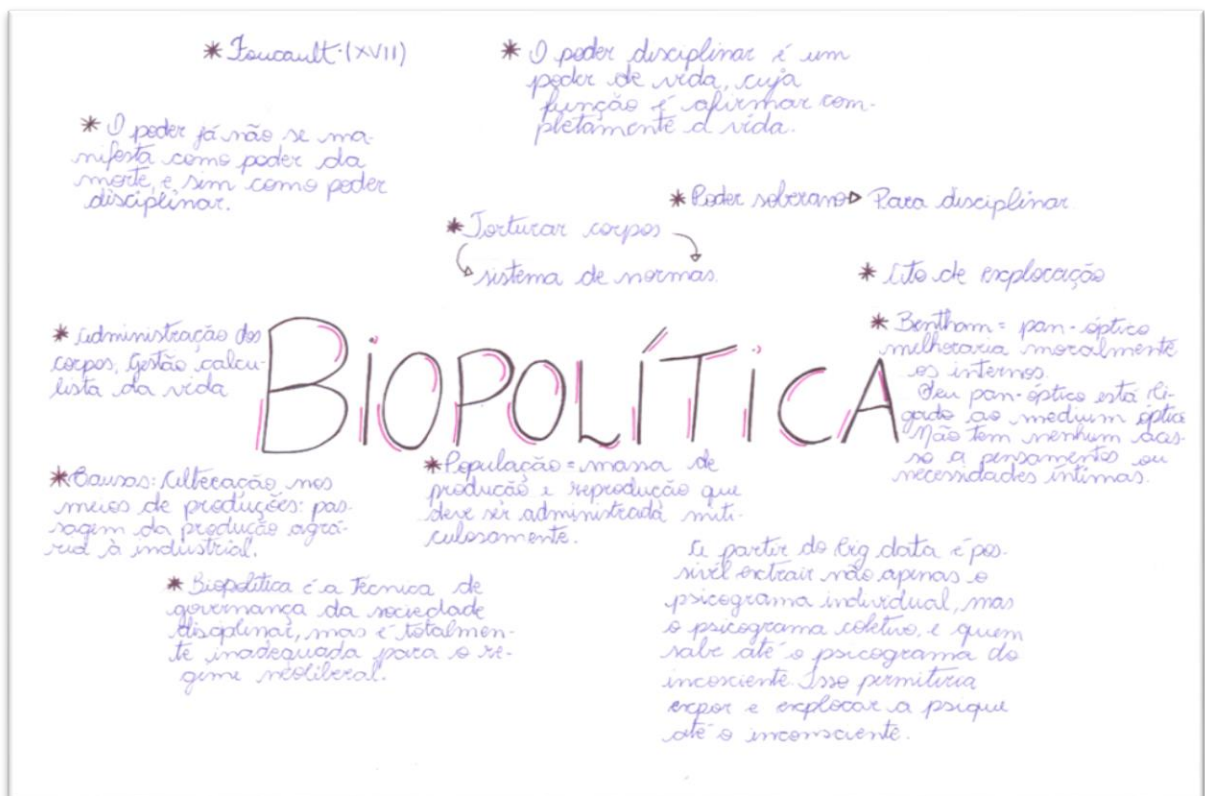 * Foucault·(XVII)
* O poder disciplinar é um
poder de vida, cuja
função é afirmar com-
pletamente a vida.
* O poder já não se ma-
nifesta como poder da
morte, e sim como poder
disciplinar.
* Poder soberano▷ Para disciplinar.
* Torturar corpos
sistema de normas.
* Ato de exploração
* Administração dos
corpos, Gestão calcu-
lista da vida
BIOPOLÍTICA
* Bentham = pan-óptico
melhoraria moralmente
os internos.
Seu pan-óptico está li-
gado ao medium óptico
Não tem nenhum aces-
so a pensamentos ou
necessidades íntimas.
* Causas: Alteração nos
meios de produções: pas-
sagem da produção agrá-
ria à industrial.
* População = massa de
produção e reprodução que
deve ser administrada miti-
culosamente.
* Biopolítica é a Técnica de
governança da sociedade
disciplinar, mas é totalmen-
te inadequada para o re-
gime neoliberal.
A partir do big data é pos-
sível extrair não apenas o
psicograma individual, mas
o psicograma coletivo, e quem
sabe até o psicograma do
incosciente. Isso permitiria
expor e explocar a psique
até o inconsciente.